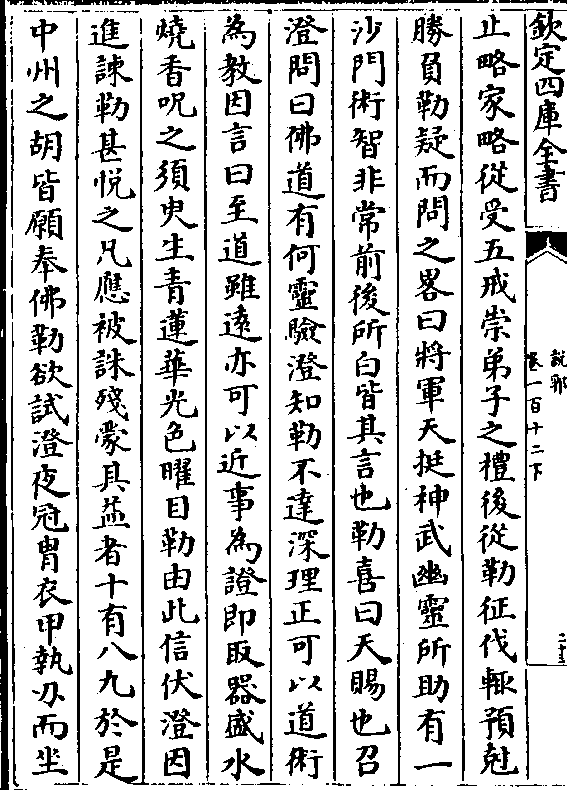 欽定四庫全書
說郛
卷一百十二下
止略家略從受五戒崇弟子之禮後從勒征伐輒預尅
勝負勒疑而問之畧曰將軍天挺神武幽靈所助有一
沙門術智非常前後所白皆其言也勒喜曰天賜也召
澄問曰佛道有何靈驗澄知勒不達深理正可以道術
為教因言曰至道雖遠亦可以近事為證即取器盛水
燒香呪之須臾生青蓮華光色曜目勒由此信伏澄因
進諫勒甚悦之凡應被誅殘蒙其益者十有八九於是
中州之胡皆願奉佛勒欲試澄夜冠胄衣甲執刃而坐